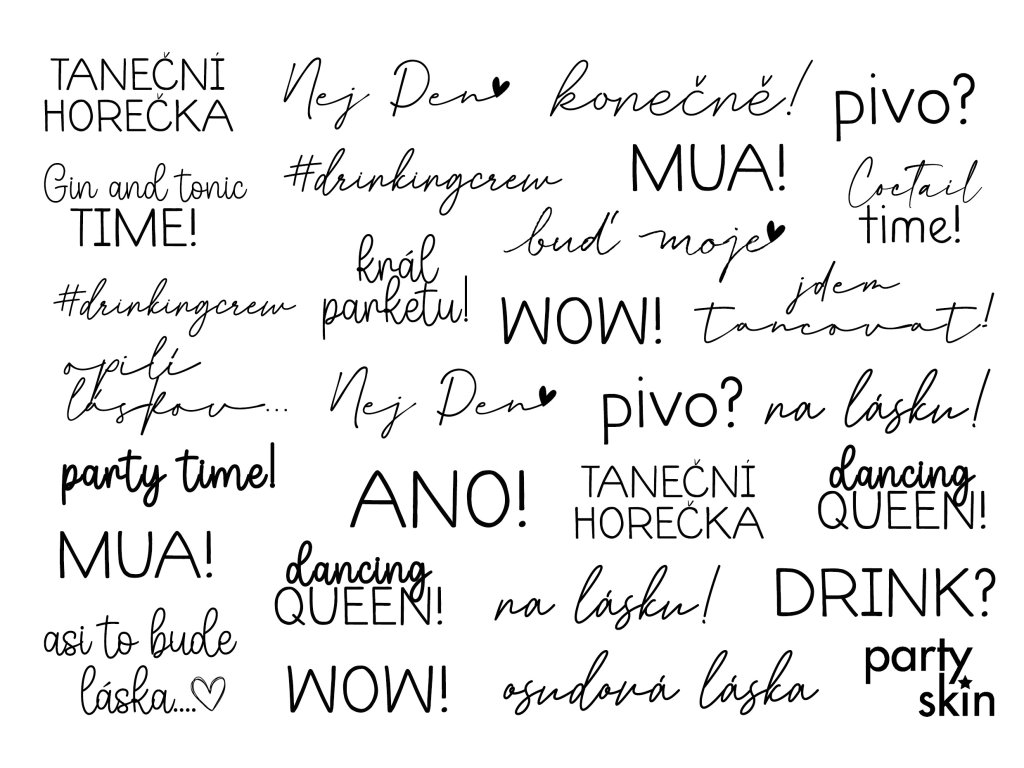 TANEČNÍ
HOREČKA
Nej Den
konečně!
pivo?
Gin and tonic
TIME!
#drinkingcrew
MUA!
Coctail
time!
buď moje
král
parketu!
#drinkingcrew
WOW!
jdem
tancovat!
opilí
láskou...
Nej Den
pivo?
na lásku!
party time!
ANO!
TANEČNÍ
HOREČKA
dancing
QUEEN!
MUA!
dancing
QUEEN!
na lásku!
DRINK?
asi to bude
láska....
WOW!
osudová láska
party
skin